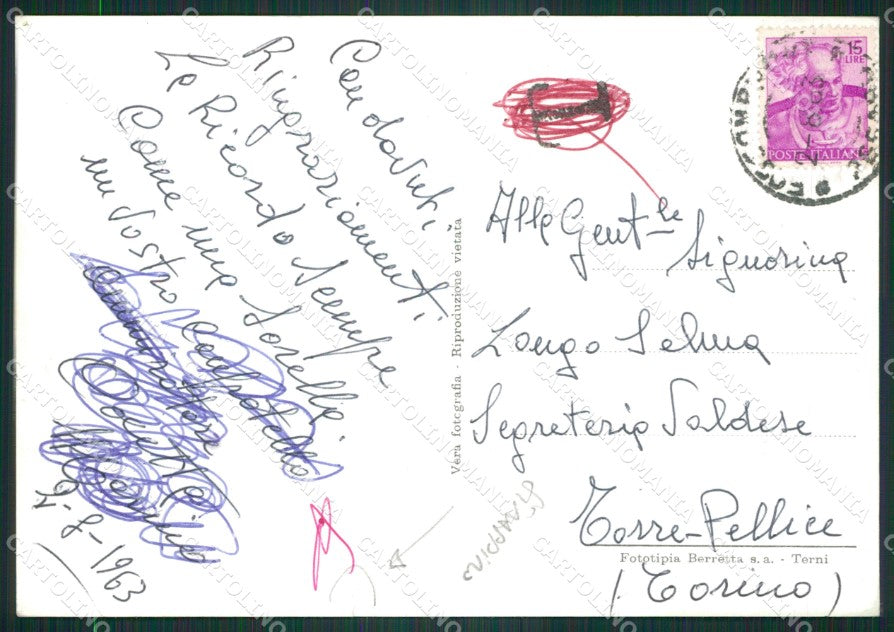 Con dovuti
Ringraziamenti
Le Ricordo Sempre
Come una Sorella.
un Vostro Confratello
9-8-1963
Vera fotografia - Riproduzione vietata
T
15
LIRE
POSTE ITALIANE
Alla Gent.le
Signorina
Longo Selma
Segreteria Valdese
Torre-Pellice
Fototipia Berretta s.a. - Terni
(Torino)
CARTOLINOMANIA